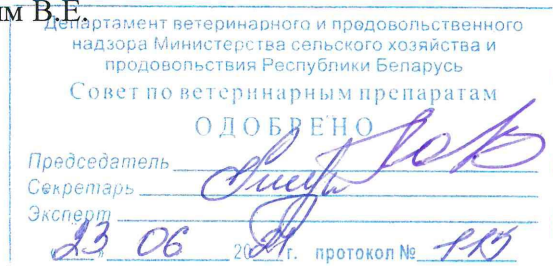 им В.Е.
Департамент ветеринарного и продовольственного
надзора Министерства сельского хозяйства и
продовольствия Республики Беларусь
Совет по ветеринарным препаратам
ОДОБРЕНО
Председатель
Секретарь
Эксперт
23 06 2021 г. протокол № 115